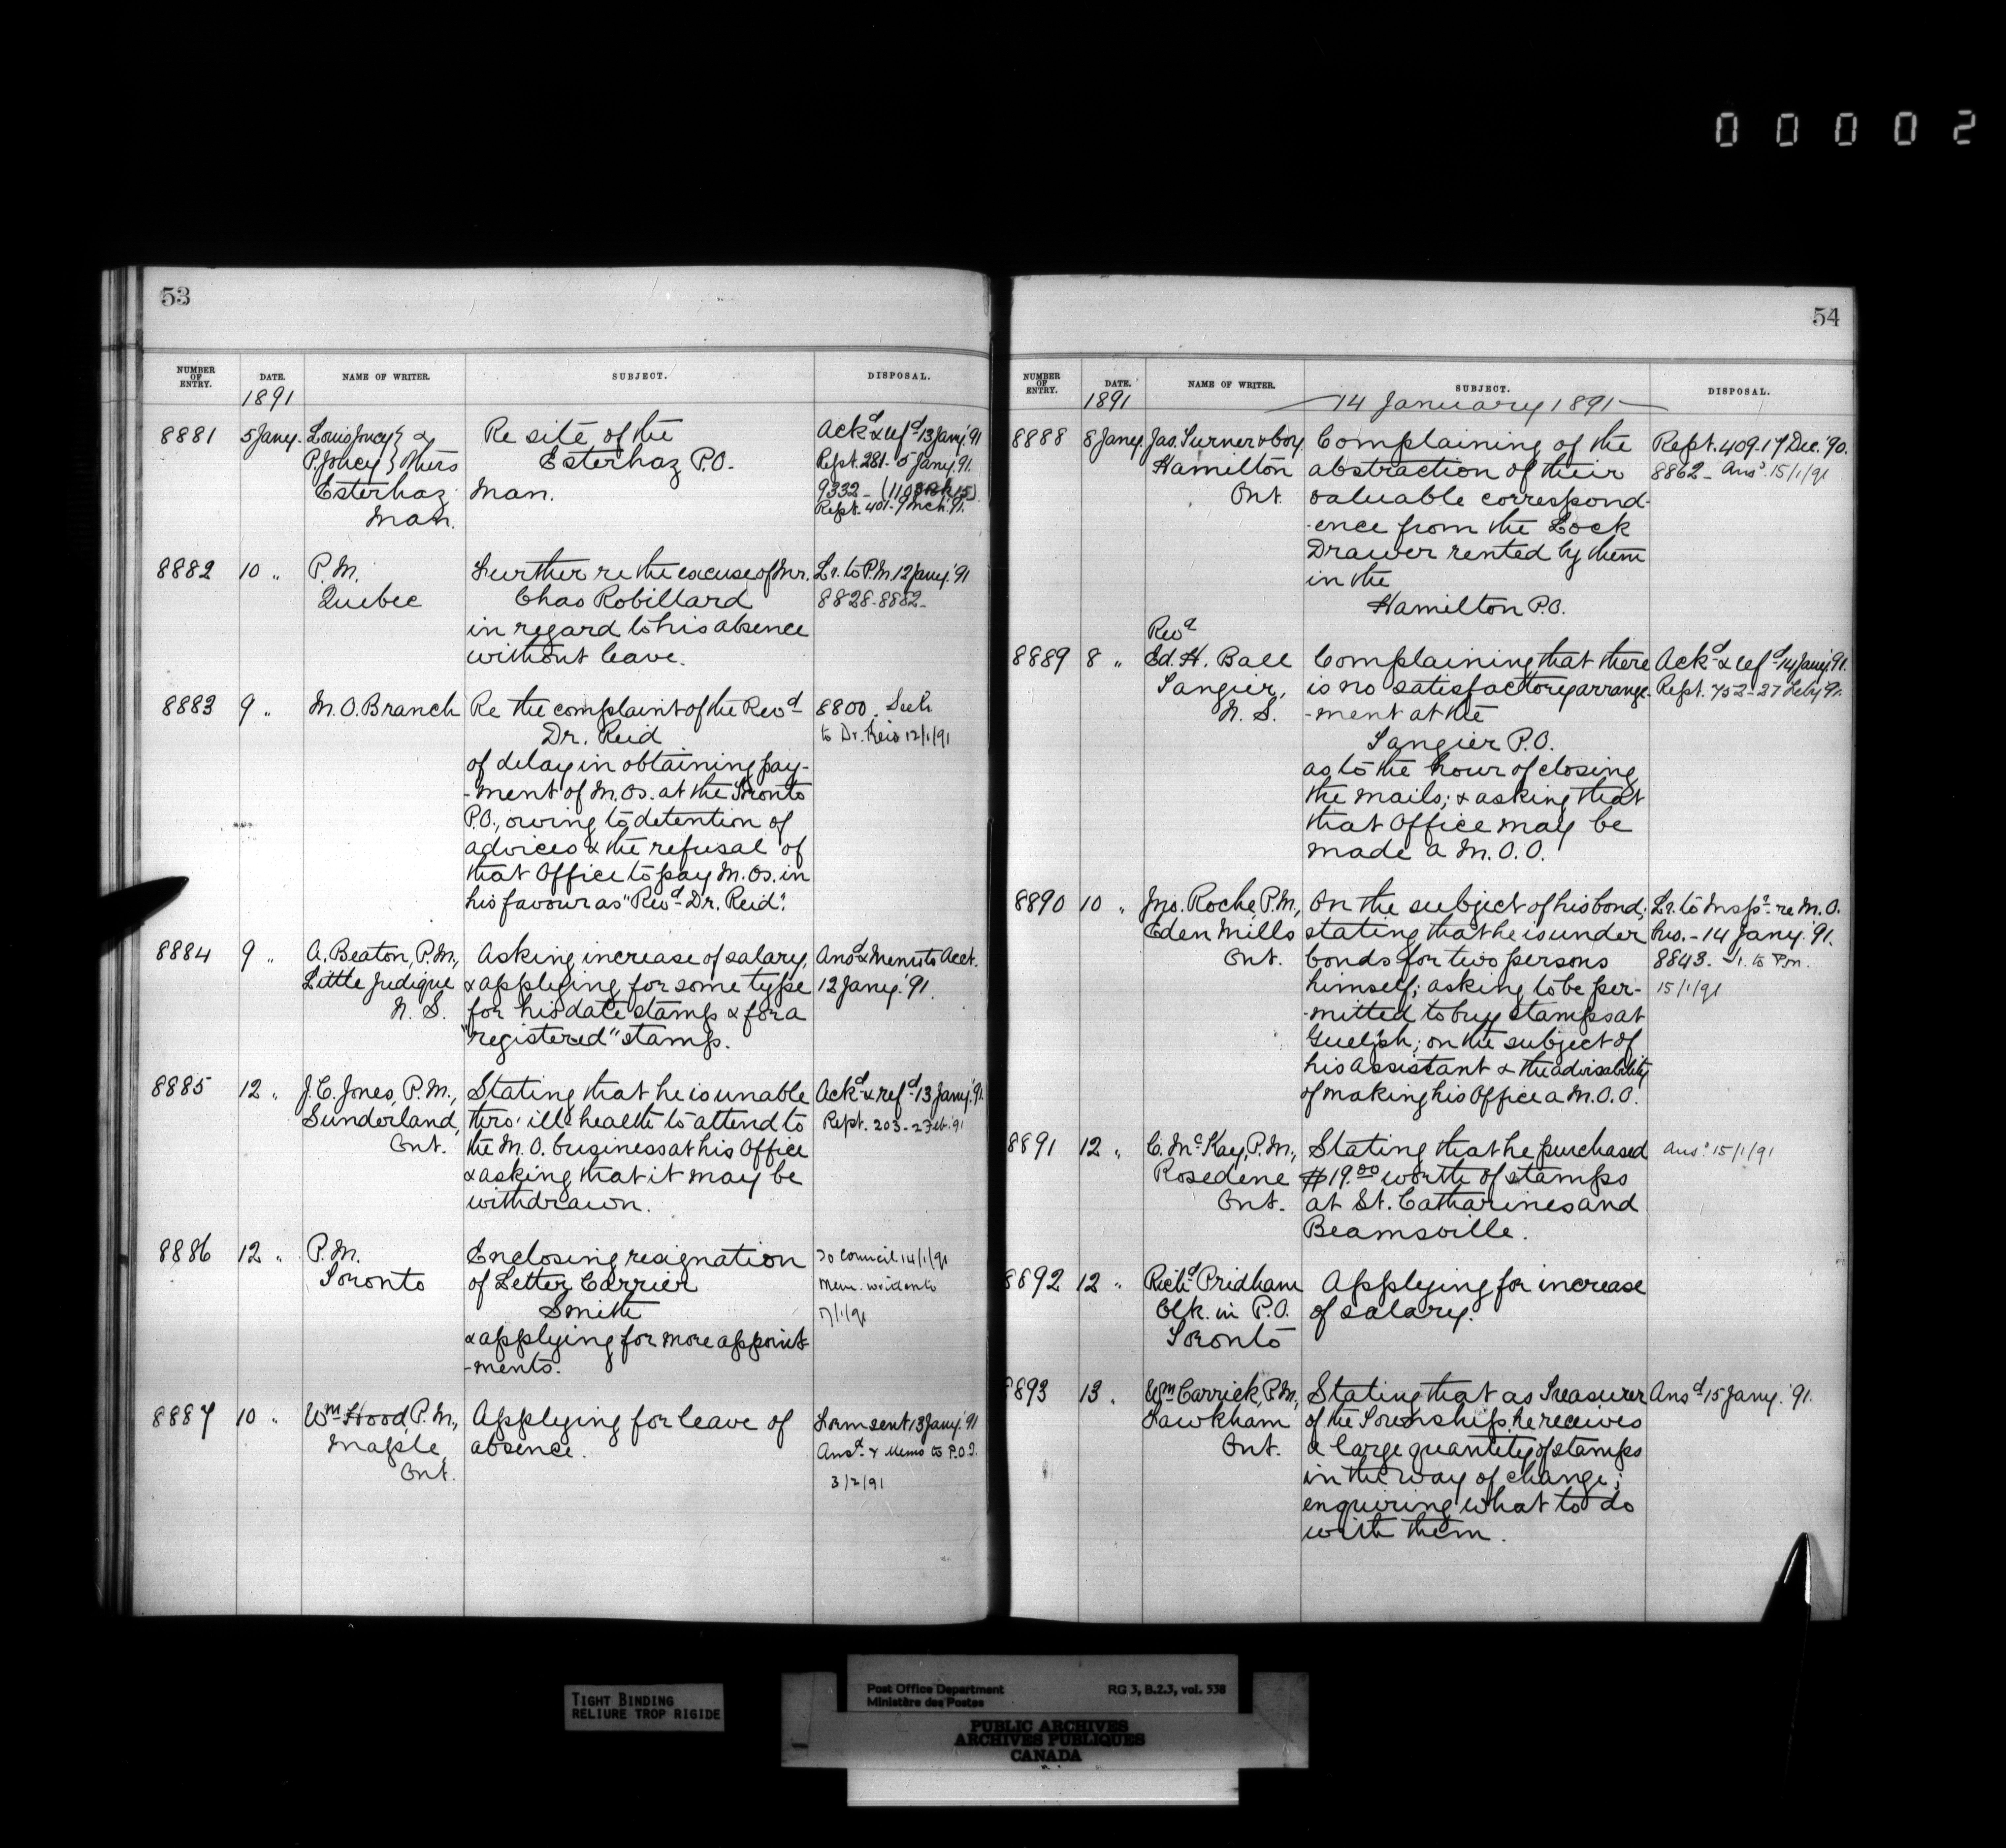 00002
53
NUMBER OF ENTRY. DATE. NAME OF WRITER. SUBJECT. DISPOSAL.
1891
8881 5 Jany. Louis & Re site of the Ackd & refd 13 Jany. '91
P. } Others Esterhaz P.O. Rept. 281. 5 Jany. 91.
Esterhaz Man. 9332 -
Man. Rept. 401. 9 Mch. 91.
8882 10 " P.M. Further re the excuse of Mr. Lr. to P.M. 12 Jany. '91
Quebec Chas Robillard 8828-8882-
in regard to his absence
without leave.
8883 9 " M.O. Branch Re the complaint of the Revd 8800.
Dr. Reid to Dr. Reid 12/1/91
of delay in obtaining pay-
-ment of M.Os. at the Toronto
P.O., owing to detention of
advices & the refusal of
that Office to pay M.Os. in
his favour as "Revd Dr. Reid".
8884 9 " A. Beaton, P.M., Asking increase of salary, Ansd & Memo to Acct.
Little Judique & applying for some type 12 Jany. '91.
N.S. for his date stamp & for a
"registered" stamp.
8885 12 " J.C. Jones, P.M., Stating that he is unable Ackd & refd 13 Jany. '91.
Sunderland, thro' ill-health to attend to Rept. 203 - 2 Feb. '91
Ont. the M.O. business at his Office
& asking that it may be
withdrawn.
8886 12 " P.M. Enclosing resignation To Council 14/1/91
Toronto of Letter Carrier Mem.
Smith
& applying for more appoint-
-ments.
8887 10 " Wm Hood, P.M., Applying for leave of Form sent 13 Jany. '91
Maple absence. Ansd & Memo to P.O.I.
Ont. 3/2/91
54
NUMBER OF ENTRY. DATE. NAME OF WRITER. SUBJECT. DISPOSAL.
1891 14 January 1891
8888 8 Jany. Jas. Turner & Coy Complaining of the Rept. 409-17 Dec. '90.
Hamilton abstraction of their 8862 - Ansd 15/1/91
Ont. valuable correspond-
-ence from the Lock
Drawer rented by them
in the
Hamilton P.O.
Revd
8889 8 " Ed. H. Ball Complaining that there Ackd & refd 14 Jany. '91.
Tangier, is no satisfactory arrange- Rept. 752-27 Feby '91.
N.S. -ment at the
Tangier P.O.
as to the hour of closing
the mails; & asking that
that Office may be
made a M.O.O.
8890 10 " Jno. Roche, P.M., On the subject of his bond; Lr. to Inspr. re M.O.
Eden Mills stating that he is under bus. - 14 Jany. '91.
Ont. bonds for two persons 8843. to P.M.
himself; asking to be per- 15/1/91
-mitted to buy stamps at
Guelph; on the subject of
his Assistant & the advisability
of making his Office a M.O.O.
8891 12 " C. McKay, P.M., Stating that he purchased Ansd 15/1/91
Rosedene $19.00 worth of stamps
Ont. at St. Catharines and
Beamsville.
8892 12 " Richd Pridham Applying for increase
Clk. in P.O. of salary.
Toronto
8893 13 . Wm Carrick, P.M., Stating that as Treasurer Ansd 15 Jany. '91.
Lawkham of the Township, he receives
Ont. a large quantity of stamps
in the way of change;
enquiring what to do
with them.
TIGHT BINDING
RELIURE TROP RIGIDE
Post Office Department RG 3, B.2.3, vol. 538
Ministère des Postes
PUBLIC ARCHIVES
ARCHIVES PUBLIQUES
CANADA